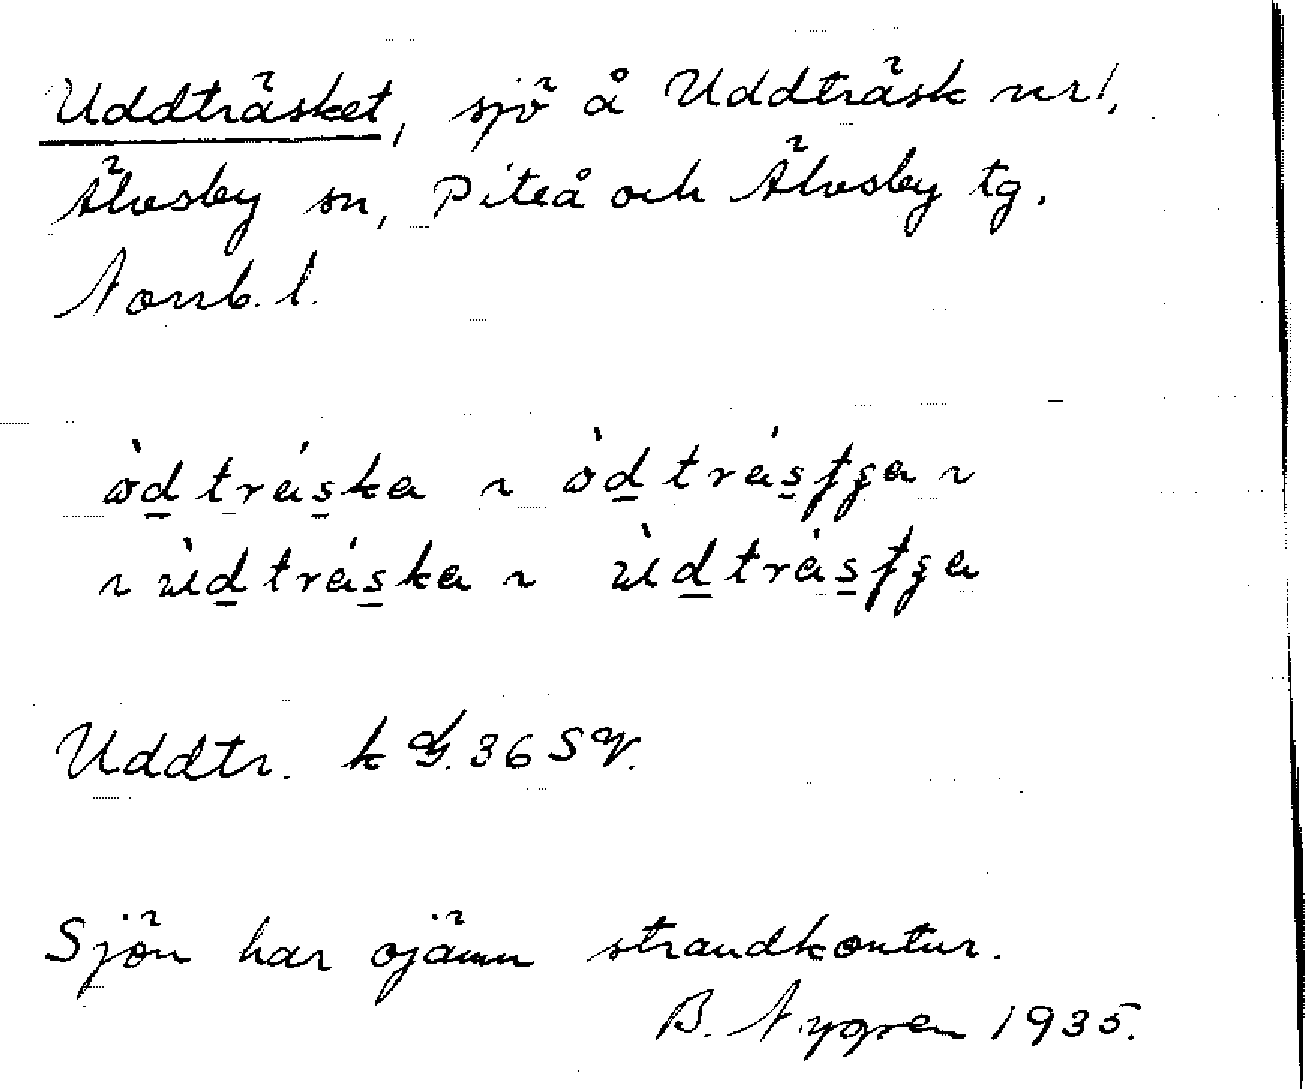 Uddträsket, sjö å Uddträsk nr 1,
Älvsby sn, Piteå och Älvsby tg.
Norrb. l.
òd̲trás̲ka ~ òd̲trás̲ʃʒa ~
~ ùd̲trás̲ka ~ ùd̲trás̲ʃʒa
Uddtr. k G. 36 SV.
Sjön har ojämn strandkontur.
B. Nygren 1935.